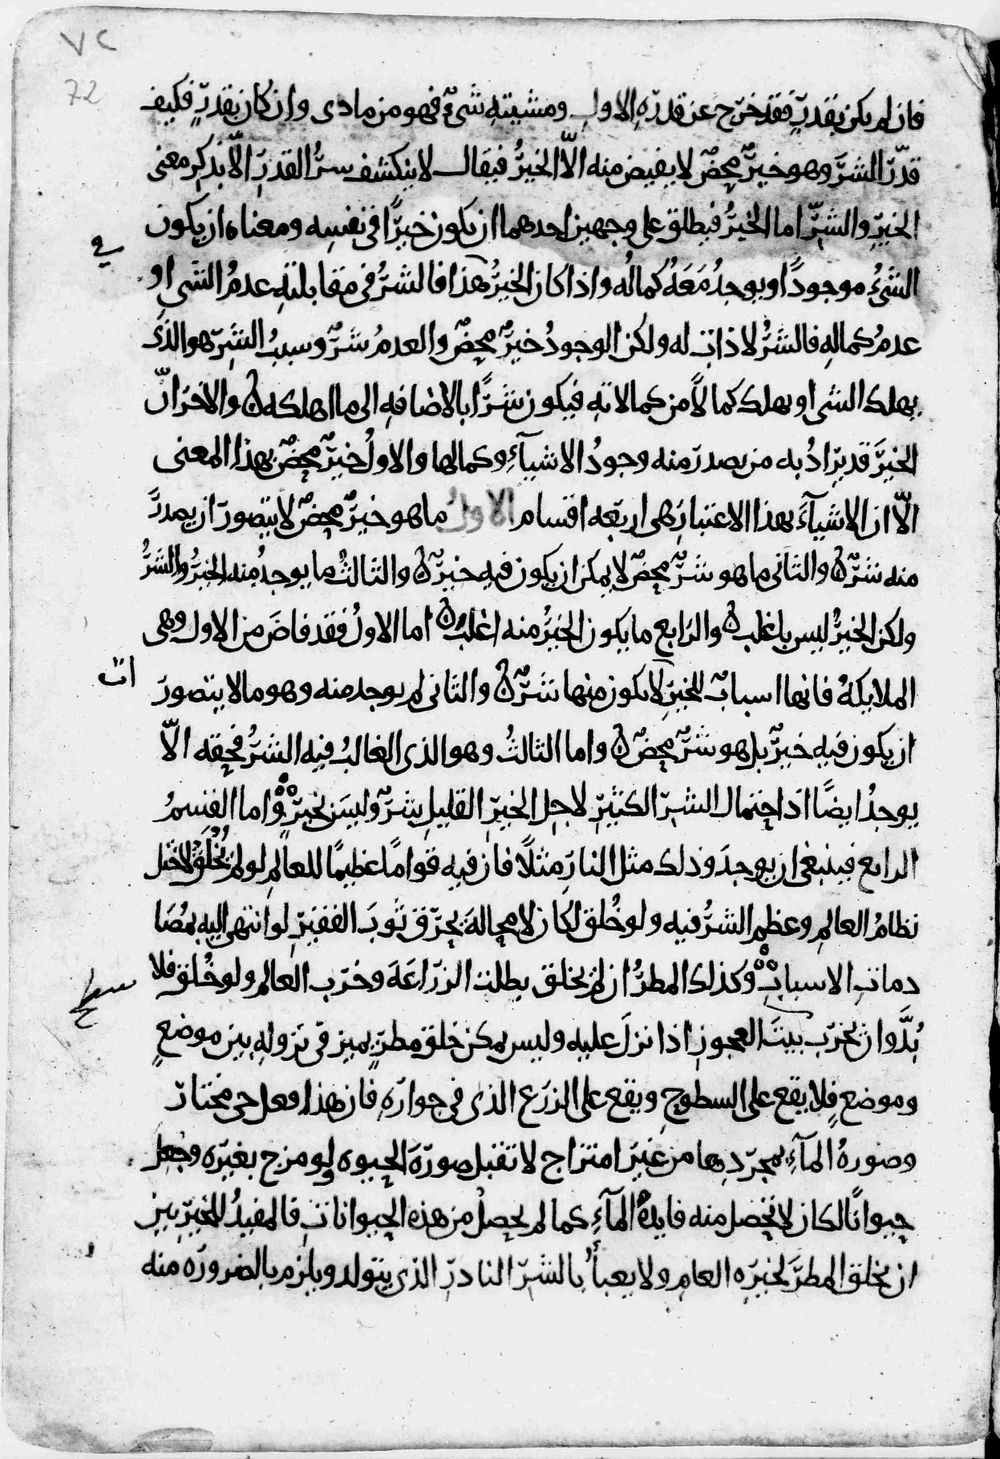 ٧٢
72
فان لم يكن بقدرٍ فقد خرج عن قدرته الاول ومشيته شىء فهو من مادى وان كان بقدرٍ فكيف
قدّر الشرَّ وهو خيرٌ محضٌ لا يفيض منه الّا الخيرُ فيقال لا ينكشف سرُّ القدرِ الّا بذكر معنى
الخيرِ والشرِّ اما الخيرُ فيطلق على وجهين احدهما ان يكون خيرًا فى نفسه ومعناه ان يكون
فى
الشىءُ موجودًا او يوجدُ مَعَهُ كمالُه واذا كان الخيرُ هذا فالشرُّ فى مقابلتهِ عدمُ الشىِ او
عدمُ كمالهِ فالشرُّ لا ذات له ولكن الوجودُ خيرٌ محضٌ والعدمُ شرٌّ وسببُ الشرِّ هو الذى
يهلك الشى او يهلك كمالًا من كمالاتهِ فيكون شرًّا بالاضافه الى ما اهلكه والاخر انَّ
الخيرَ قد يراد به من يصدر منه وجودُ الاشيآءِ وكمالها والاولُ خيرٌ محضٌ بهذا المعنى
الّا ان الاشيآءَ بهذا الاعتبار هى اربعه اقسام الاول ما هو خيرٌ محضٌ لا يتصور ان يصدرَ
منه شرٌّ والثانى ما هو شرٌّ محضٌ لا يمكن ان يكون فيه خيرٌ والثالث ما يوجدُ منه الخيرُ والشرُّ
ولكن الخيرُ ليس باغلب والرابع ما يكون الخيرُ منه اغلبُ اما الاولُ فقد فاضَ من الاول وهى
الملايكهُ فانها اسبابٌ للخيرِ لا يكون منها شرٌّ والثانى لم يوجد منه وهو ما لا يتصور
ان يكون فيه خيرٌ بل هو شرٌّ محضٌ واما الثالثُ وهو الذى الغالبُ فيه الشرُّ فحقه الّا
يوجدُ ايضًا اذ احتمال الشرِّ الكثيرِ لاجل الخيرِ القليلِ شرٌّ وليسَ بخيرٍ واما القسمُ
الرابع فينبغى ان يوجدَ وذلك مثل النارِ مثلًا فان فيه قوامًا عظيمًا للعالمِ لو لم يُخلَق لاختل
نظامُ العالمِ وعظم الشرُّ فيه ولو خُلق لكان لا محالهَ يحرق ثوبَ الفقيرِ لو انتهى اليه بمُصَا
دمات الاسبابِ وكذلك المطرُ ان لم يخلق بطلت الزراعَهَ وخرب العالم ولو خُلق فلا
بُدَّ وان يخرب بيتَ العجوز اذا نزلَ عليه وليس يمكن خلق مطرٍ يميز فى نزولهِ بين موضعٍ
وموضعٍ فلا يقع على السطوحِ ويقع على الزرَع الذى فى جوارهِ فان هذا فعل حى مختار
وصورهُ المآءِ بمجردِها من غير امتزاج لا تقبل صورةَ الحيوه ولو مزج بغيره وجعل
حيوانًا لكان لا تحصل منه فايدهُ المآءِ كما لم يحصل من هذه الحيوانات فالمفيدُ للخير بين
ان يخلق المطرَ لخيره العام ولا يعبأُ بالشرِّ النادرِ الذى يتولد ويلزم بالضروره منه